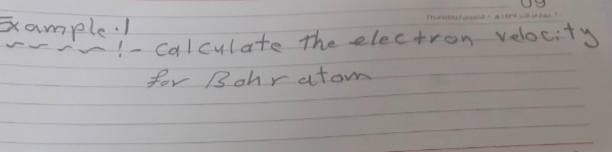 09
Example.1
:- calculate the electron velocity
for Bohr atom